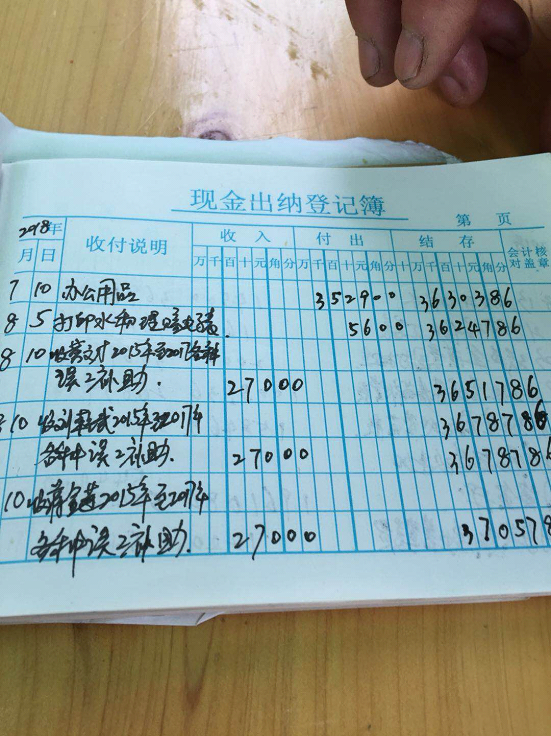 现金出纳登记簿
第 页
2018年 收付说明 收入 付出 结存 会计核对盖章
月 日 万千百十元角分 万千百十元角分 万千百十元角分
7 10 办公用品 352900 3630386
8 5 打印水和 5600 3624786
8 10 收 2015年至2017各种
误工补助. 27000 3651786
10 收 2015年至2017年 367878
各种中误工补助. 27000 367878
10 收 2015年至2017年
各种中误工补助. 27000 370578